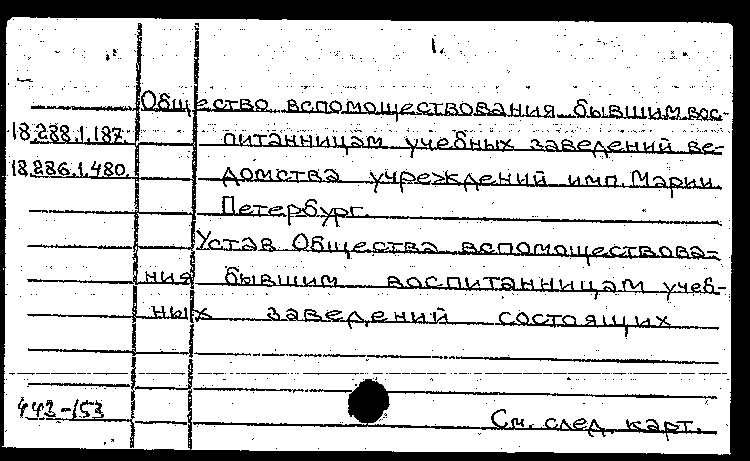 1.
Общество вспомоществования бывшим вос-
18.288.1.187. питанницам учебных заведений ве-
18.286.1.480. домства учреждений имп. Марии.
Петербург.
Устав Общества вспомоществова-
ния бывшим воспитанницам учеб-
ных заведений состоящих
443-153
См. след. карт.